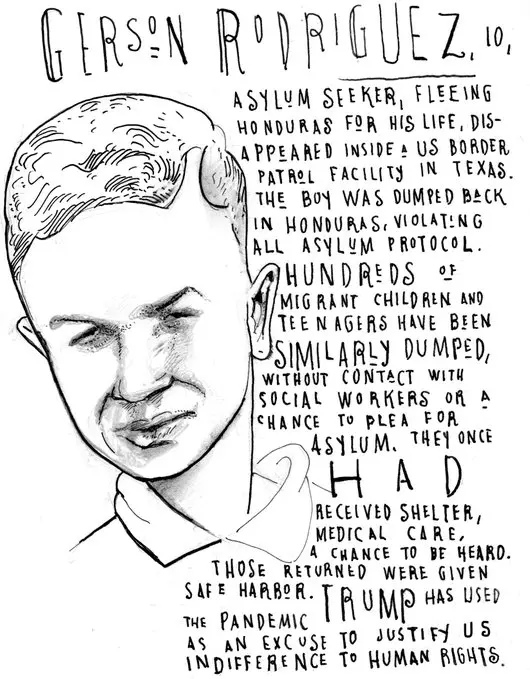 GERSON RODRIGUEZ, 10,
ASYLUM SEEKER, FLEEING
HONDURAS FOR HIS LIFE, DIS-
APPEARED INSIDE A US BORDER
PATROL FACILITY IN TEXAS.
THE BOY WAS DUMPED BACK
IN HONDURAS, VIOLATING
ALL ASYLUM PROTOCOL.
HUNDREDS OF
MIGRANT CHILDREN AND
TEENAGERS HAVE BEEN
SIMILARLY DUMPED,
WITHOUT CONTACT WITH
SOCIAL WORKERS OR A
CHANCE TO PLEA FOR
ASYLUM. THEY ONCE
HAD
RECEIVED SHELTER,
MEDICAL CARE,
A CHANCE TO BE HEARD.
THOSE RETURNED WERE GIVEN
SAFE HARBOR. TRUMP HAS USED
THE PANDEMIC
AS AN EXCUSE TO JUSTIFY US
INDIFFERENCE TO HUMAN RIGHTS.